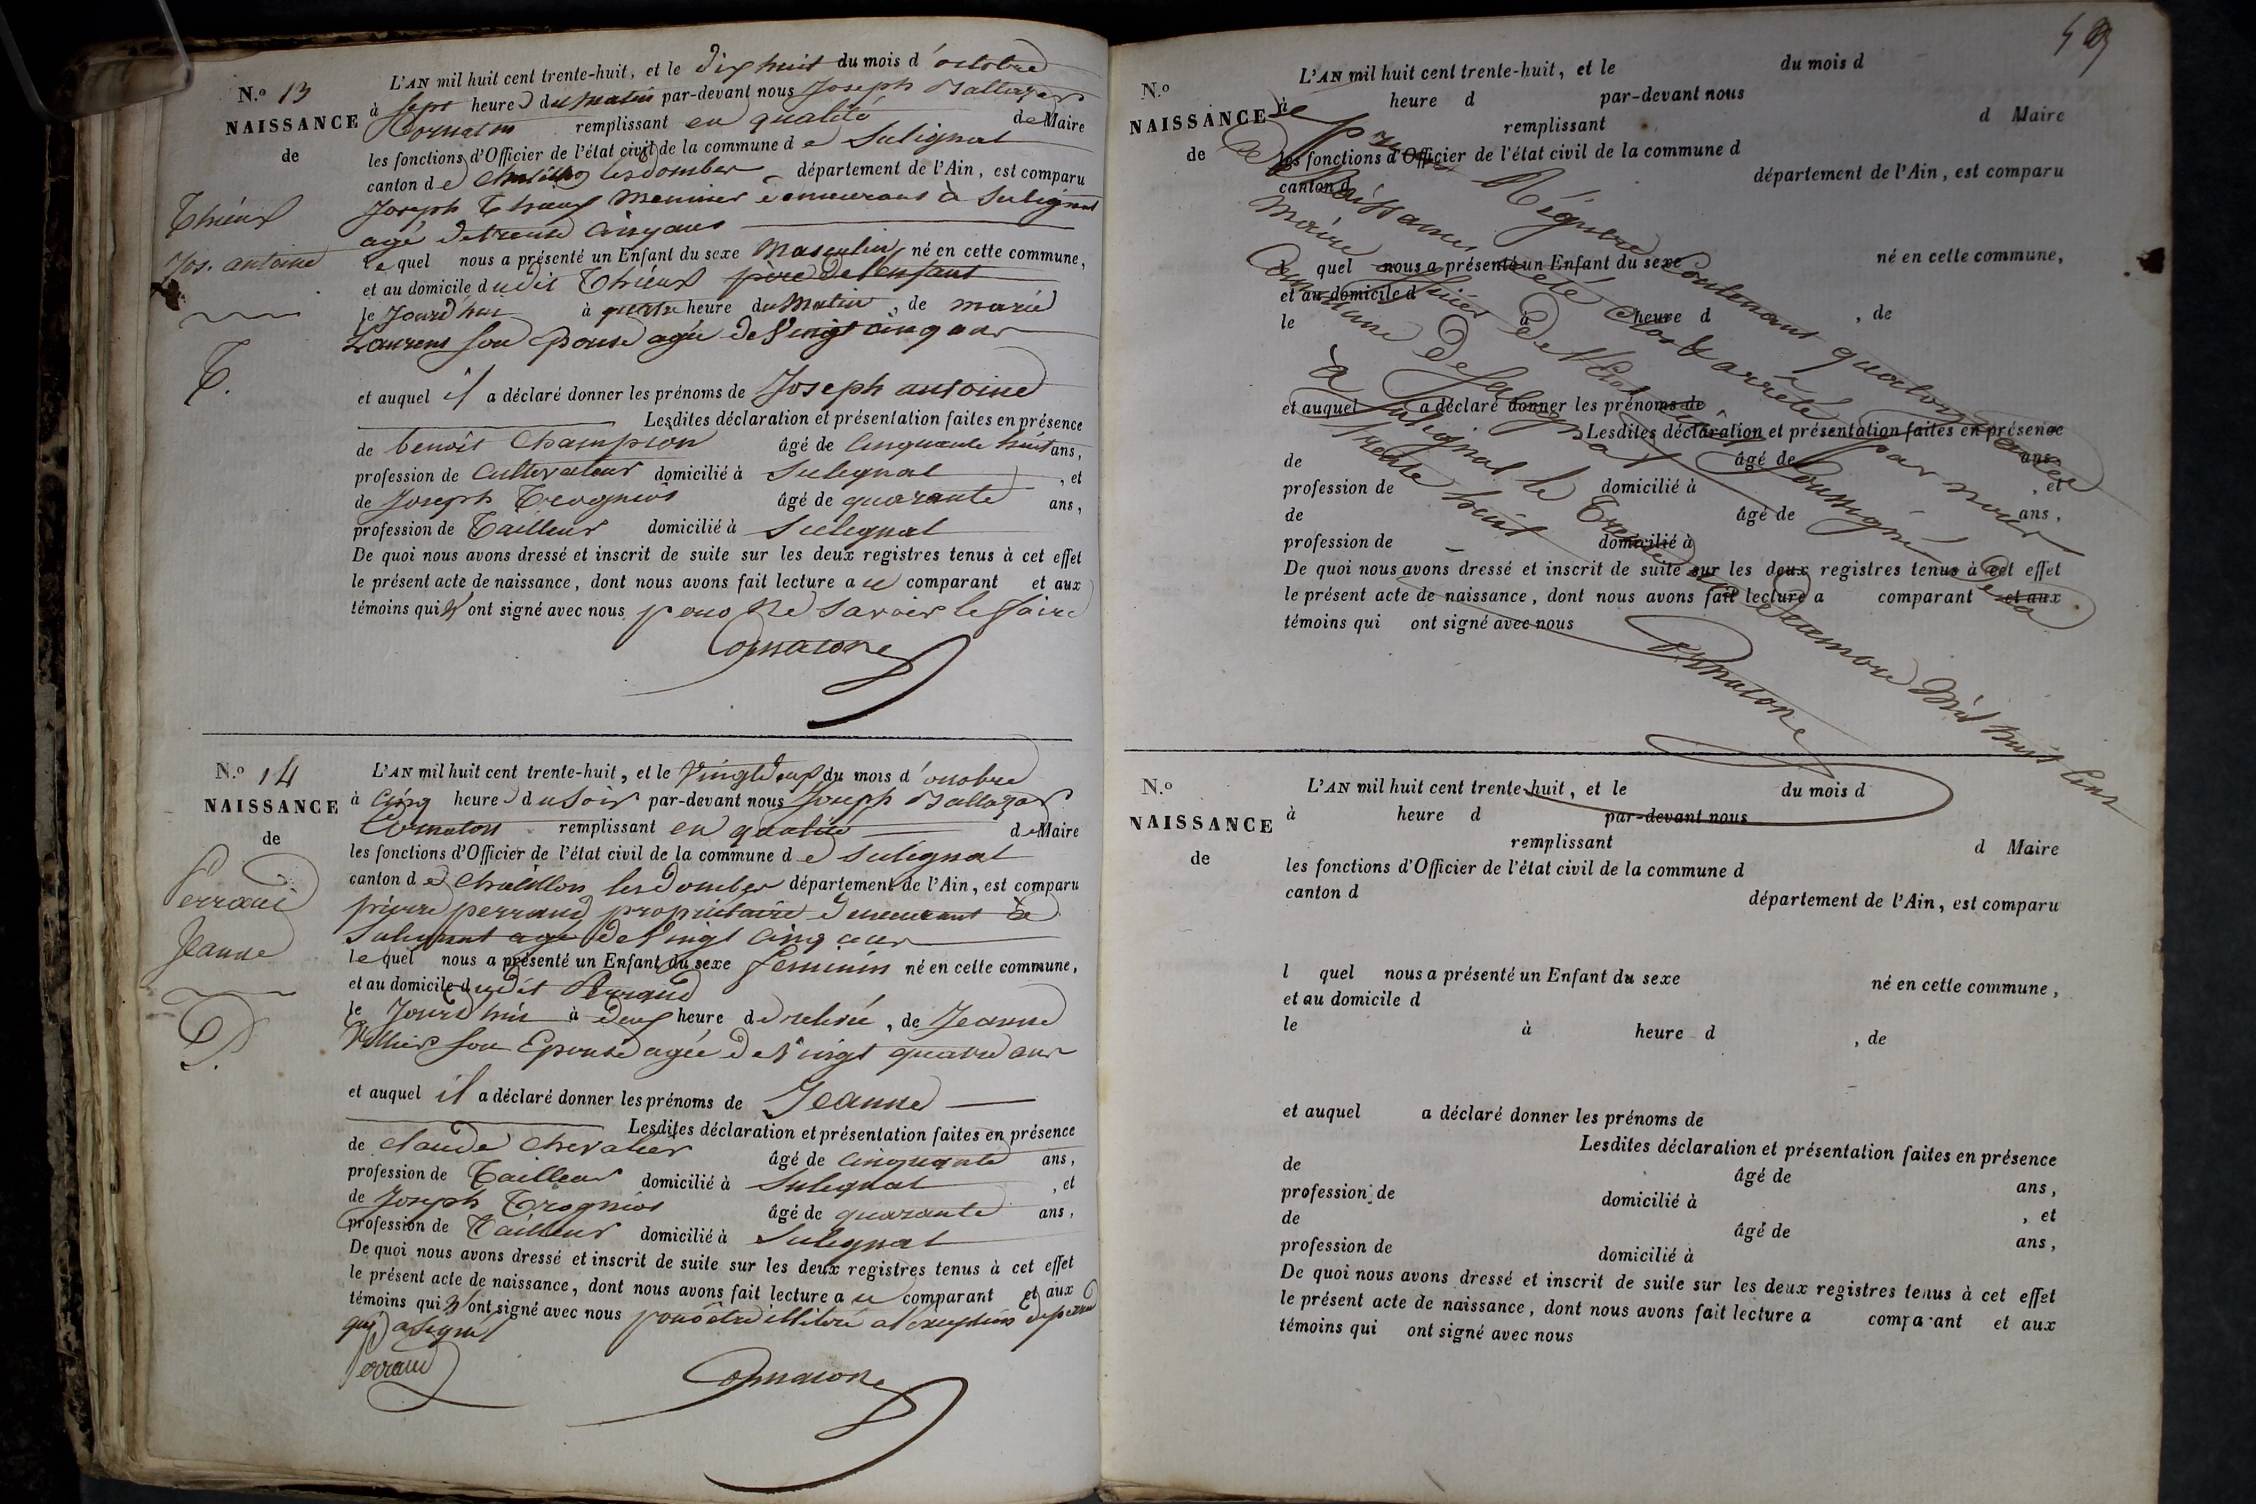 N.º 13
NAISSANCE
de
Thieux
Jos. antoine
T.
L'AN mil huit cent trente-huit, et le dix huit du mois d'octobre
à sept heures du matin par-devant nous Joseph Baltazar
Cornaton remplissant en qualité de Maire
les fonctions d'Officier de l'état civil de la commune de Sulignat
canton de Chatillon les dombes département de l'Ain, est comparu
Joseph Thieux Meunier demeurant à Sulignat
agé de trente Cinq ans
le quel nous a présenté un Enfant du sexe Masculin né en cette commune,
et au domicile dudit Thieux père de l'enfant
le Jourd'hui à quatre heure du Matin, de marie
Laurens son Epouse agée de Vingt Cinq ans
et auquel il a déclaré donner les prénoms de Joseph antoine
Lesdites déclaration et présentation faites en présence
de benoit Champion âgé de Cinquante huit ans,
profession de Cultivateur domicilié à Sulignat, et
de Joseph Trognios âgé de quarante ans,
profession de Tailleur domicilié à Sulignat
De quoi nous avons dressé et inscrit de suite sur les deux registres tenus à cet effet
le présent acte de naissance, dont nous avons fait lecture a ce comparant et aux
témoins qui N'ont signé avec nous pour Ne Savoir le faire
Cornaton
N.º 14
NAISSANCE
de
Perraud
Jeanne
L'AN mil huit cent trente-huit, et le Vingt Deux du mois d'octobre
à Cinq heures du Soir par-devant nous Joseph Baltazar
Cornaton remplissant en qualité de Maire
les fonctions d'Officier de l'état civil de la commune de Sulignat
canton de Chatillon les Dombes département de l'Ain, est comparu
pierre perraud propriétaire Demeurant à
Sulignat agé de Vingt Cinq ans
le quel nous a présenté un Enfant du sexe feminin né en cette commune,
et au domicile dudit Perraud
le Jourd'hui à Deux heure de relevée, de Jeanne
son Epouse agée de Vingt quatre ans
et auquel il a déclaré donner les prénoms de Jeanne
Lesdites déclaration et présentation faites en présence
de claude chevalier âgé de Cinquante ans,
profession de Tailleur domicilié à Sulignat, et
de Joseph Trognios âgé de quarante ans,
profession de Tailleur domicilié à Sulignat
De quoi nous avons dressé et inscrit de suite sur les deux registres tenus à cet effet
le présent acte de naissance, dont nous avons fait lecture a ce comparant et aux
témoins qui N'ont signé avec nous pour être illitéré a l'exception de perraud
qui a signé
Perraud
Cornaton
N.º
NAISSANCE
de
L'AN mil huit cent trente-huit, et le du mois d
à heure d par-devant nous
remplissant d Maire
les fonctions d'Officier de l'état civil de la commune d
canton d département de l'Ain, est comparu
l quel nous a présenté un Enfant du sexe né en cette commune,
et au domicile d
le à heure d , de
et auquel a déclaré donner les prénoms de
Lesdites déclaration et présentation faites en présence
de âgé de ans,
profession de domicilié à , et
de âgé de ans,
profession de domicilié à
De quoi nous avons dressé et inscrit de suite sur les deux registres tenus à cet effet
le présent acte de naissance, dont nous avons fait lecture a comparant et aux
témoins qui ont signé avec nous
Le présent Régistre Contenant quatorze actes
de Naissances a été Clos & arrêté par nous
Maire Officier de l'Etat Civil Soussigné de la
Commune de Sulignat
à Sulignat le Trente un Décembre Mil huit Cent
trente huit
Cornaton
N.º
NAISSANCE
de
L'AN mil huit cent trente-huit, et le du mois d
à heure d par-devant nous
remplissant d Maire
les fonctions d'Officier de l'état civil de la commune d
canton d département de l'Ain, est comparu
l quel nous a présenté un Enfant du sexe né en cette commune,
et au domicile d
le à heure d , de
et auquel a déclaré donner les prénoms de
Lesdites déclaration et présentation faites en présence
de âgé de ans,
profession de domicilié à , et
de âgé de ans,
profession de domicilié à
De quoi nous avons dressé et inscrit de suite sur les deux registres tenus à cet effet
le présent acte de naissance, dont nous avons fait lecture a comparant et aux
témoins qui ont signé avec nous